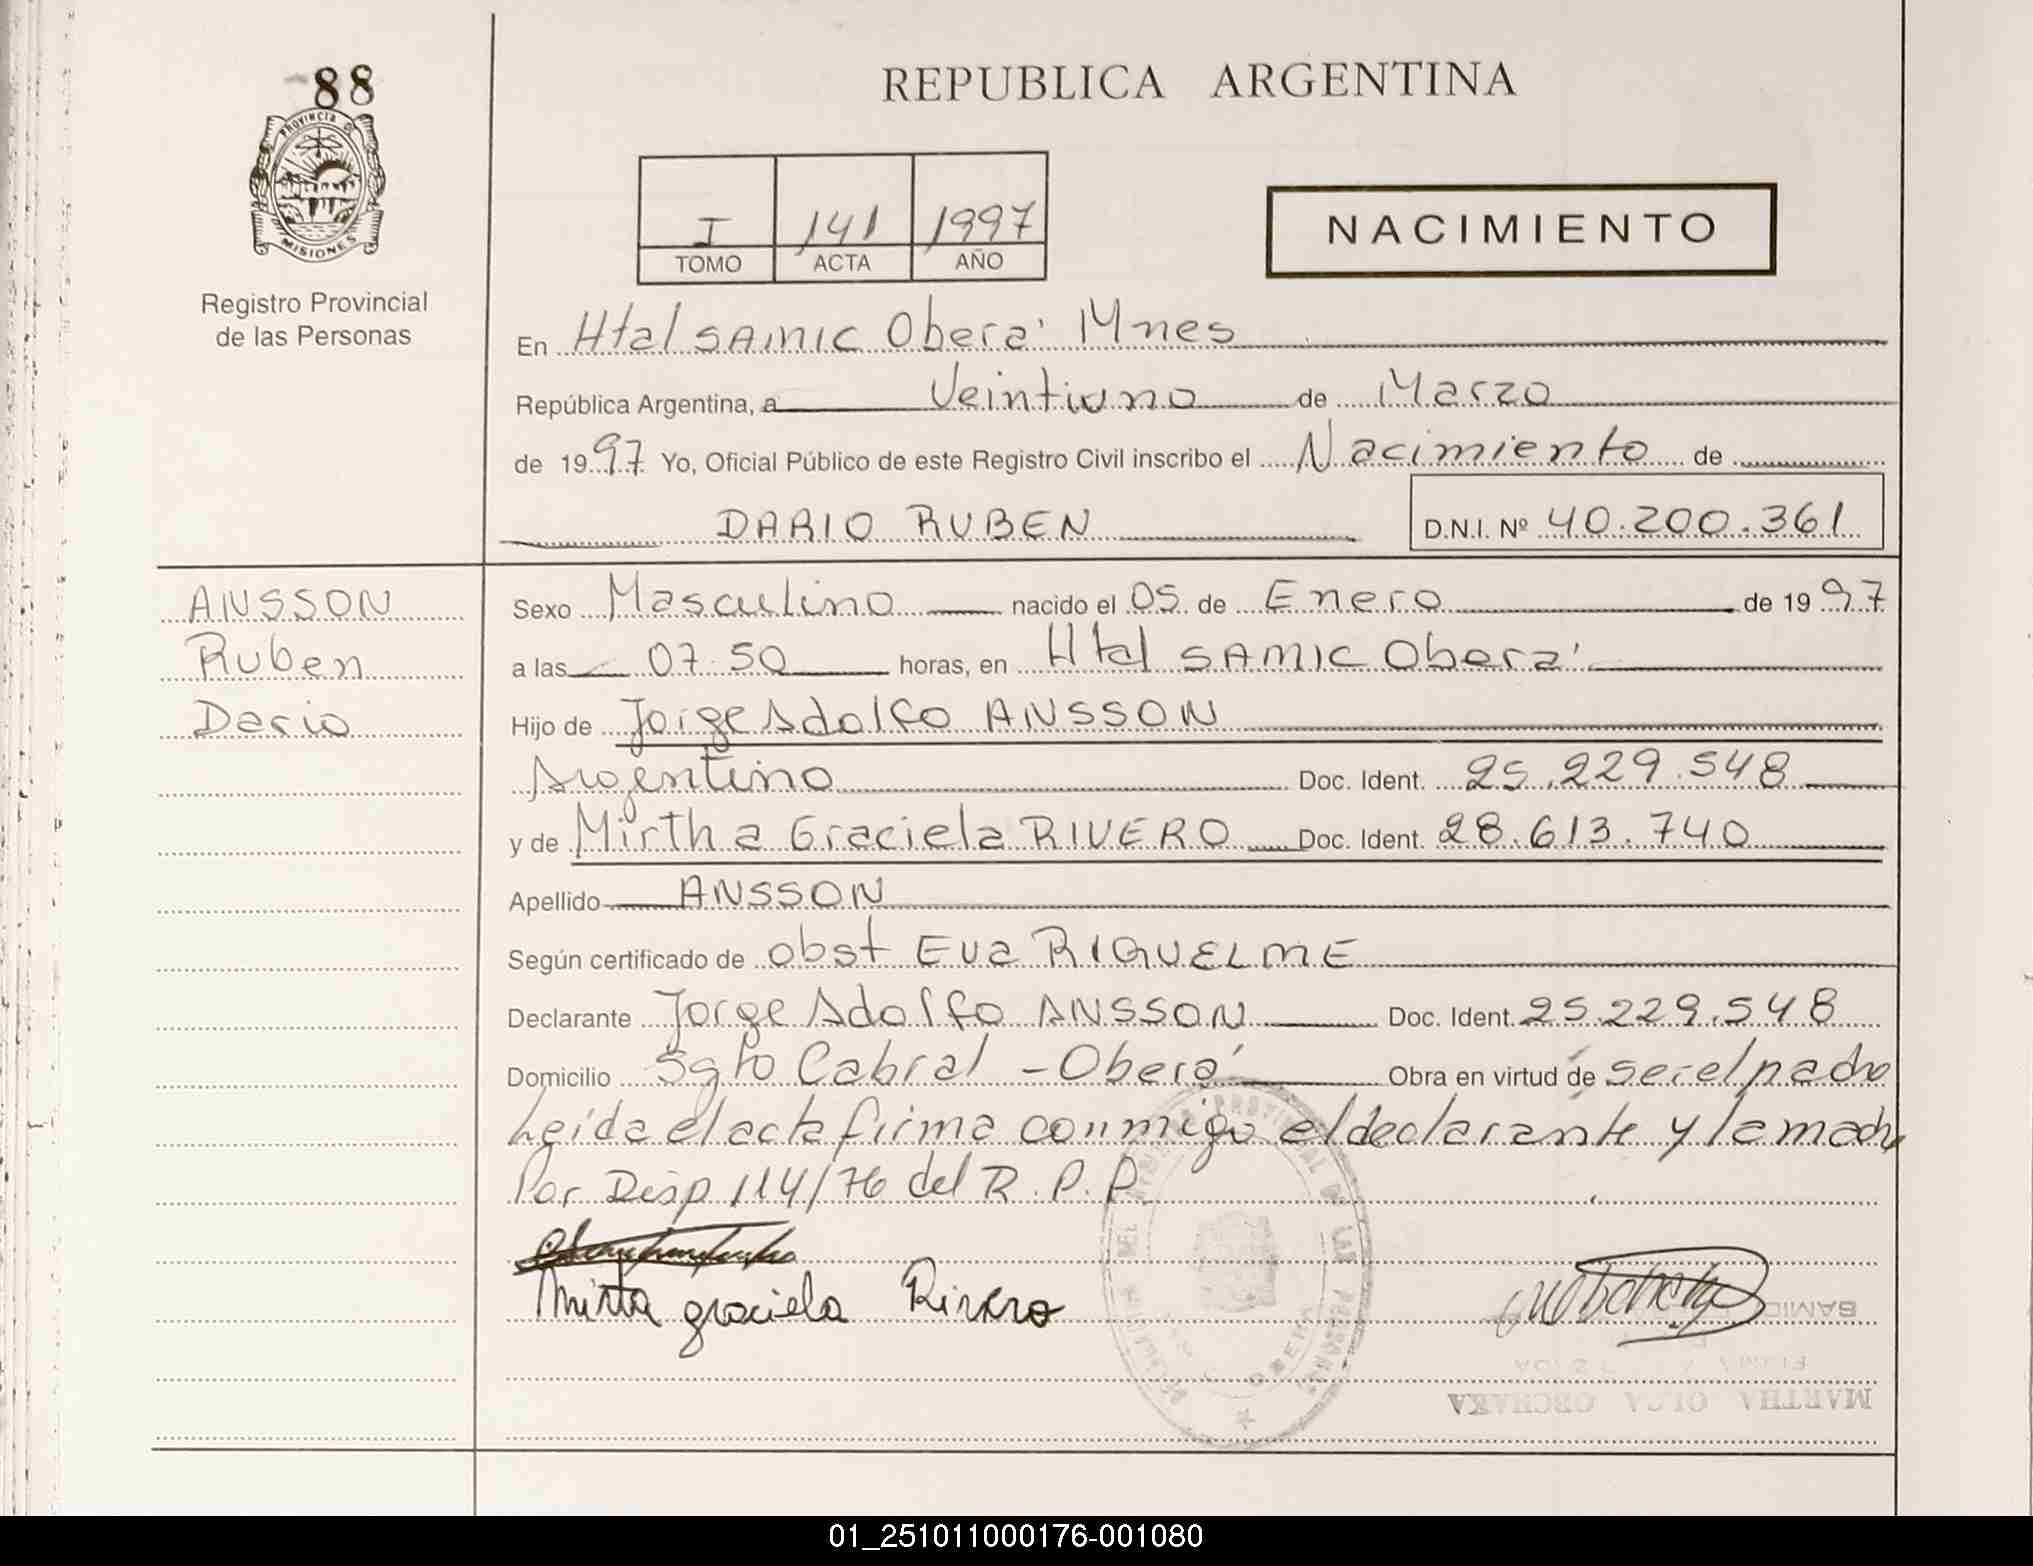 88
PROVINCIA DE
MISIONES
Registro Provincial
de las Personas
REPUBLICA ARGENTINA
I 141 1997
TOMO ACTA AÑO
NACIMIENTO
En Htal SAMIC Oberá Mnes
República Argentina, a Veintiuno de Marzo
de 1997 Yo, Oficial Público de este Registro Civil inscribo el Nacimiento de
DARIO RUBEN D.N.I. Nº 40.200.361
ANSSON
Ruben
Dario
Sexo Masculino nacido el 05 de Enero de 1997
a las 07.50 horas, en Htal SAMIC Oberá
Hijo de Jorge Adolfo ANSSON
Argentino Doc. Ident. 25.229.548
y de Mirtha Graciela RIVERO Doc. Ident. 28.613.740
Apellido ANSSON
Según certificado de obst Eva RIQUELME
Declarante Jorge Adolfo ANSSON Doc. Ident. 25.229.548
Domicilio Sgto Cabral - Oberá Obra en virtud de ser el padre
Leída el acta firma conmigo el declarante y la madre
Por Disp 114/76 del R.P.P.
Mirta graciela Rivero
01_251011000176-001080